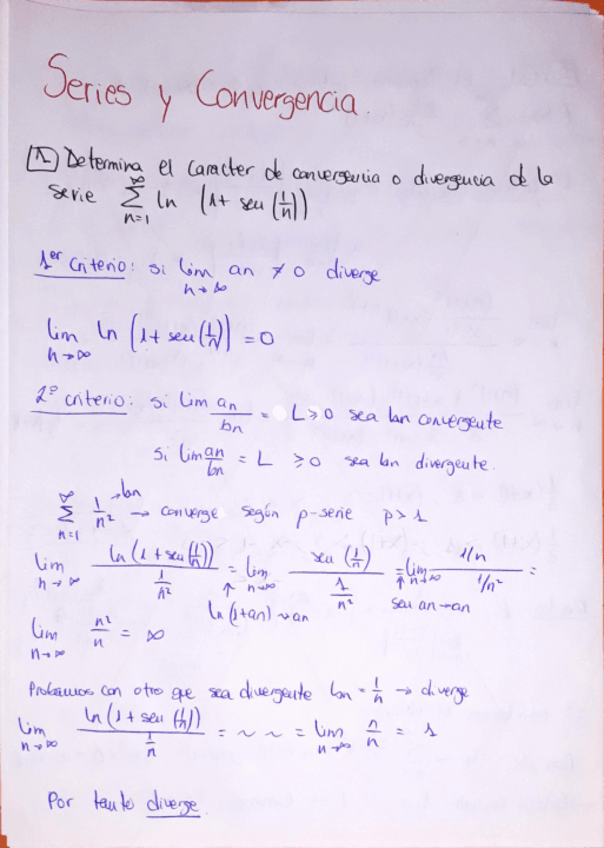 Series y Convergencia
1 Determina el caracter de convergencia o divergencia de la
serie ∑_{n=1}^{∞} ln (1+ sen (1/n))
1er criterio: si lim_{n→∞} an ≠ 0 diverge
lim_{n→∞} ln (1+ sen (1/n)) = 0
2º criterio: si lim an/bn = L>0 sea bn convergente
si lim an/bn = L ≥0 sea bn divergente.
∑_{n=1}^{∞} 1/n² →bn → converge según p-serie p>1
lim_{n→∞} ln (1+sen(1/n)) / (1/n²) = lim_{n→∞} sen (1/n) / (1/n²) = lim_{n→∞} (1/n) / (1/n²) =
↑ ln (1+an)→an ↑ sen an→an
lim_{n→∞} n²/n = ∞
Probamos con otro que sea divergente bn = 1/n → diverge
lim_{n→∞} ln (1+ sen (1/n)) / (1/n) = ~ ~ = lim_{n→∞} n/n = 1
Por tanto diverge.